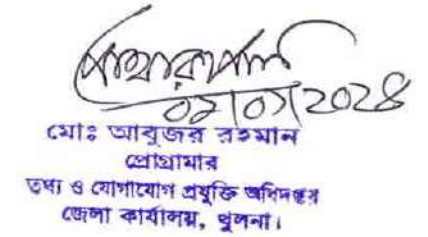 ০১/০১/2024
মোঃ আবুজর রহমান
প্রোগ্রামার
তথ্য ও যোগাযোগ প্রযুক্তি অধিদপ্তর
জেলা কার্যালয়, খুলনা।